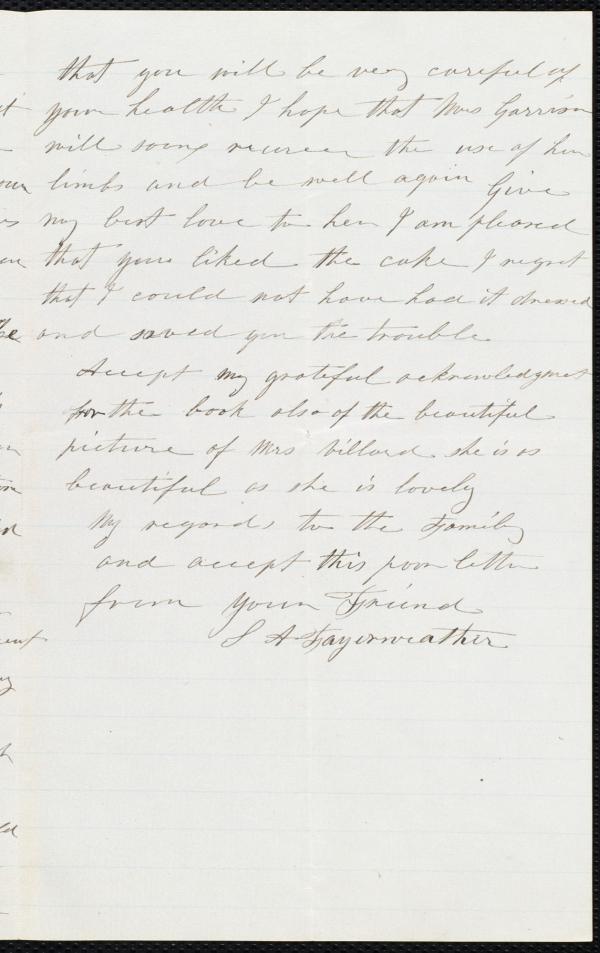 that you will be very careful of
your health I hope that Mrs Garrison
will soong recover the use of her
limbs and be well again Give
my best love to her I am pleased
that you liked the cake I regret
that I could not have had it dressed
and saved you the trouble
Accept my grateful acknowledgment
for the book also of the beautiful
picture of Mrs Villard she is as
beautiful as she is lovely
My regards to the Family
and accept this poor letter
from your Friend
S A Fayerweather